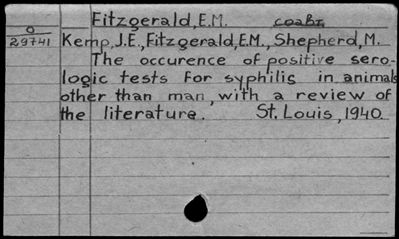 Fitzgerald, E.M. соавт.
0
29741
Kemp, J.E., Fitzgerald, E.M., Shepherd, M.
The occurence of positive sero-
logic tests for syphilis in animals
other than man, with a review of
the literatura. St. Louis, 1940.